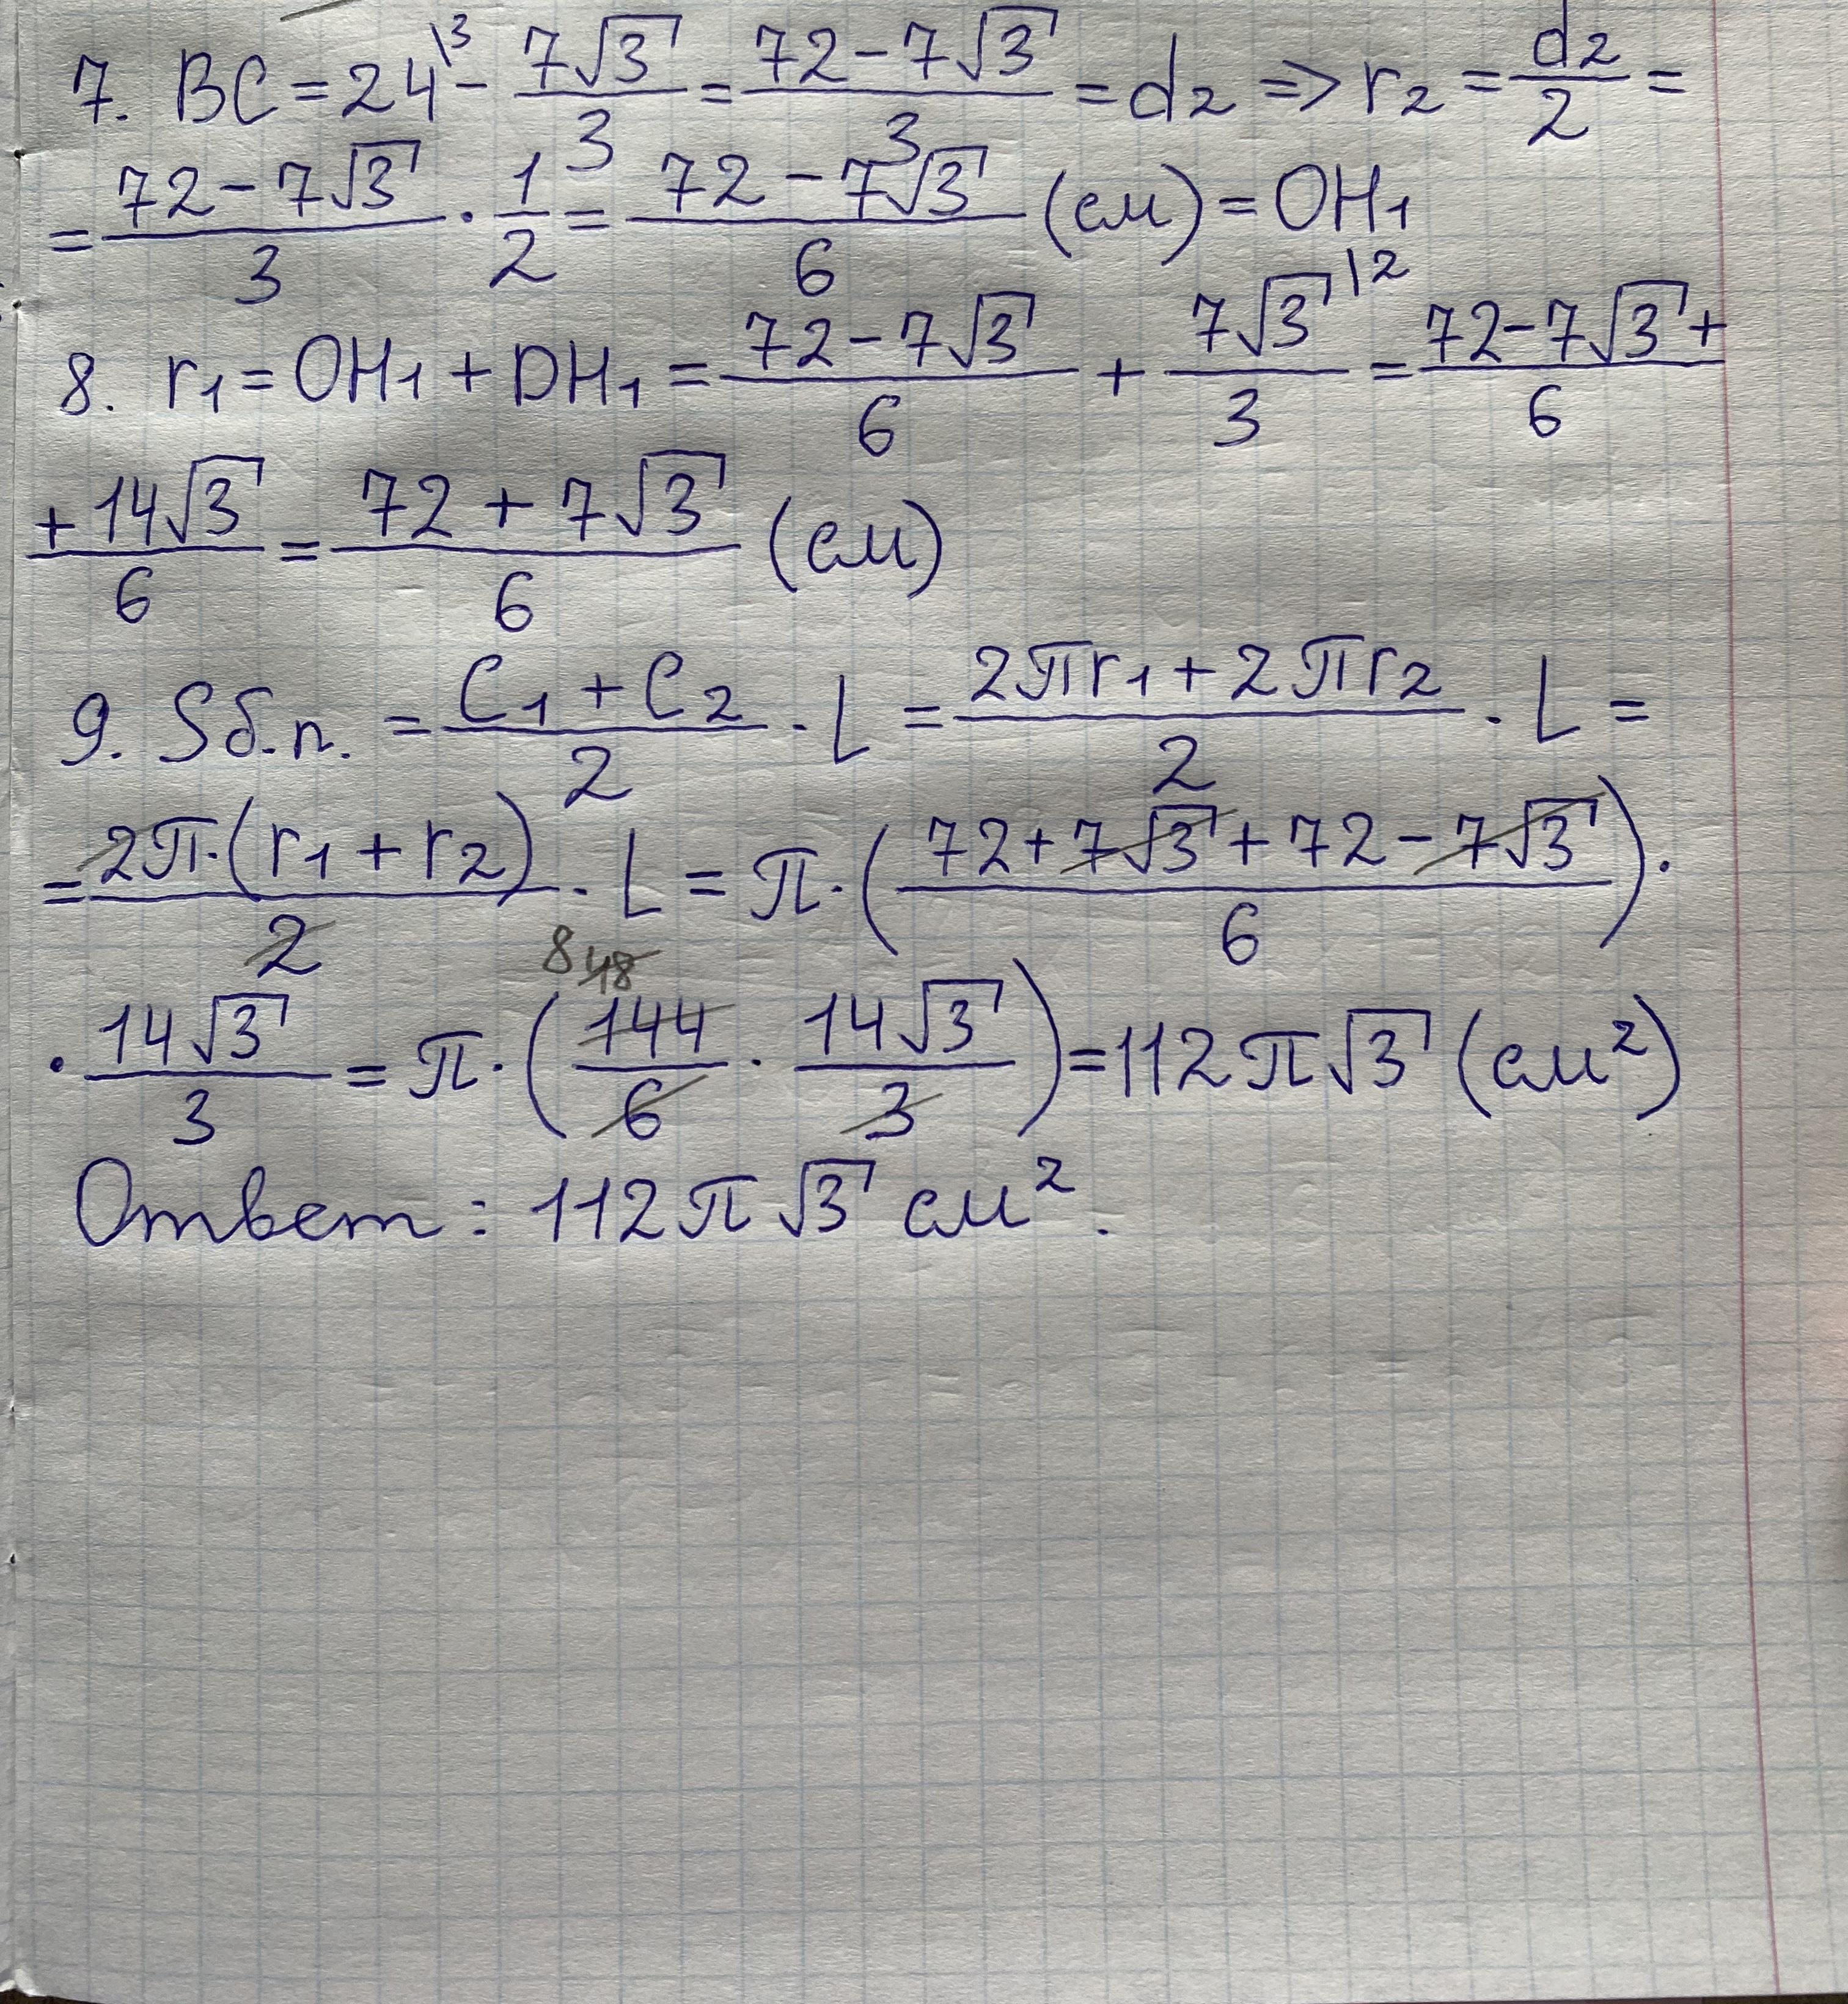 7. BC = 24\3 - 7√3/3 = 72-7√3/3 = d2 => r2 = d2/2 =
= 72-7√3/3 · 1/2 = 72-7√3/6 (см) = OH1
8. r1 = OH1 + DH1 = 72-7√3/6 + 7√3\2/3 = 72-7√3+/6
+14√3/6 = 72+7√3/6 (см)
9. Sб.п. = C1+C2/2 · L = 2πr1+2πr2/2 · L =
= 2π·(r1+r2)/2 · L = π·(72+7√3+72-7√3/6)·
8 48
· 14√3/3 = π·(144/6 · 14√3/3) = 112π√3 (см²)
Ответ: 112π√3 см².